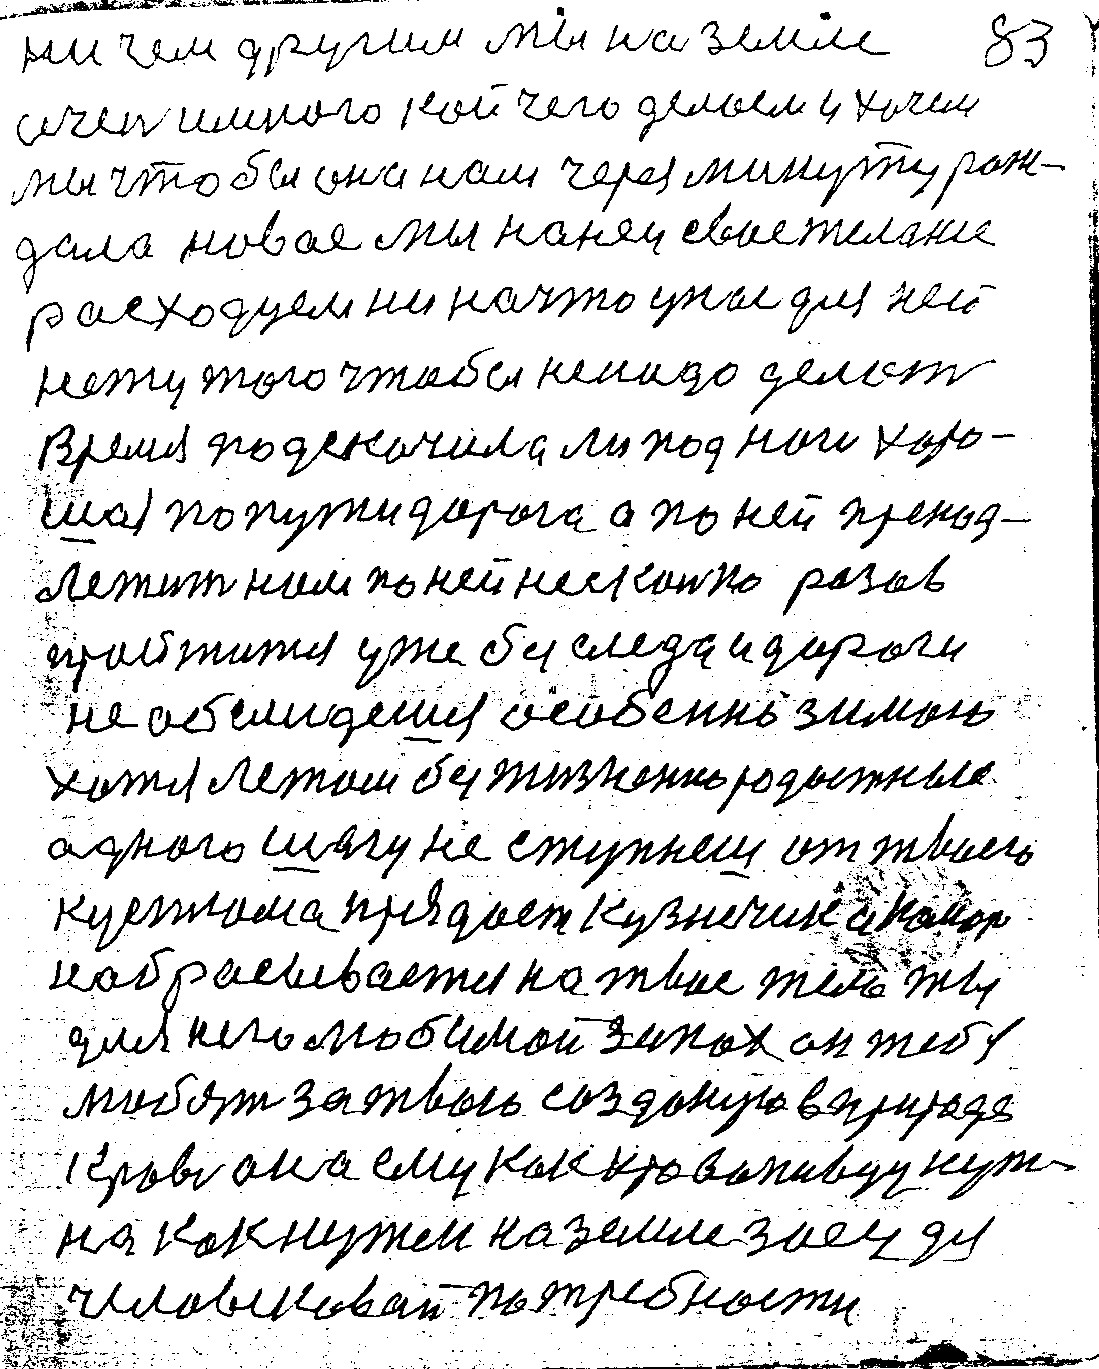 ни чем другим мы на земле 83
очен много кой чего делаем и хочем
мы что бы она нам через минуту рож-
дала новое мы на ней свое желание
расходуем ни на что у нас для ней
нету того чтобы ненадо делат
Время подскочила ли под ноги хоро-
шая по пути дорога а по ней пренад-
лежит нам по ней несколко разов
пройтится уже бы следа и дороги
не обслидешся особенно зимою
хотя летом бы жизненно радостные
адного шагу не ступнеш от твоего
кустома прядает кузнечик а комар
набрасывается на твое тело ты
для него любимой запах он тебя
любят за твою созданую в природе
Кровь она ему как кровопивцу нуж-
на как нужен на земле заец для
человиковай потребности